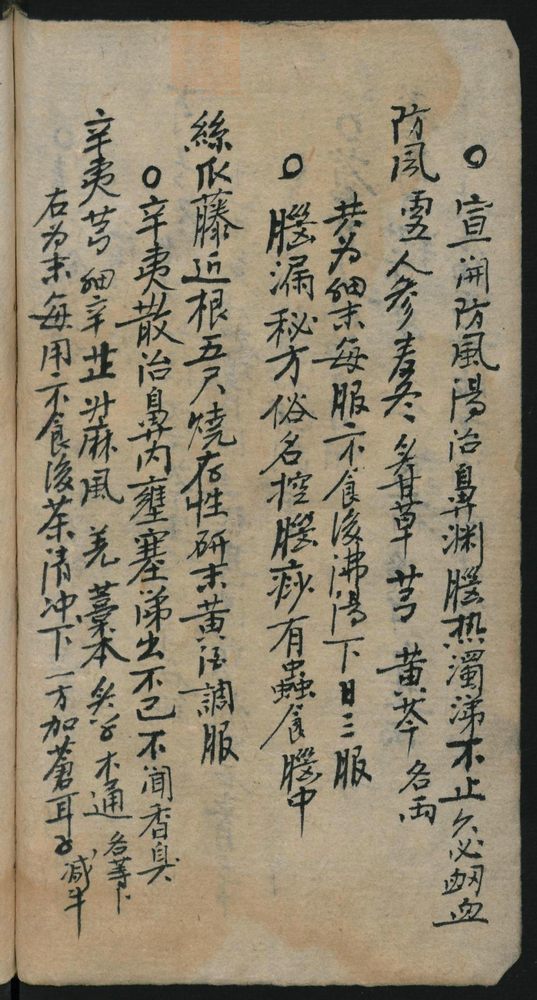 ○宣洞防風湯治鼻淵腦热濁涕不止久必衂血
防風 人參 麦冬 炙甘草 芎 黄芩 各両
共为細末每服二不食後沸湯下日三服
○腦漏秘方俗名控腦痧有蟲食腦中
絲瓜藤近根五尺燒存性研末黄酒調服
○辛夷散治鼻内壅塞涕出不已不闻香臭
辛夷 芎 細辛 芷 升麻 風 羌 藁本 炙甘 木通 各等卜
右为末每用二不食後茶清冲下一方加蒼耳子减半